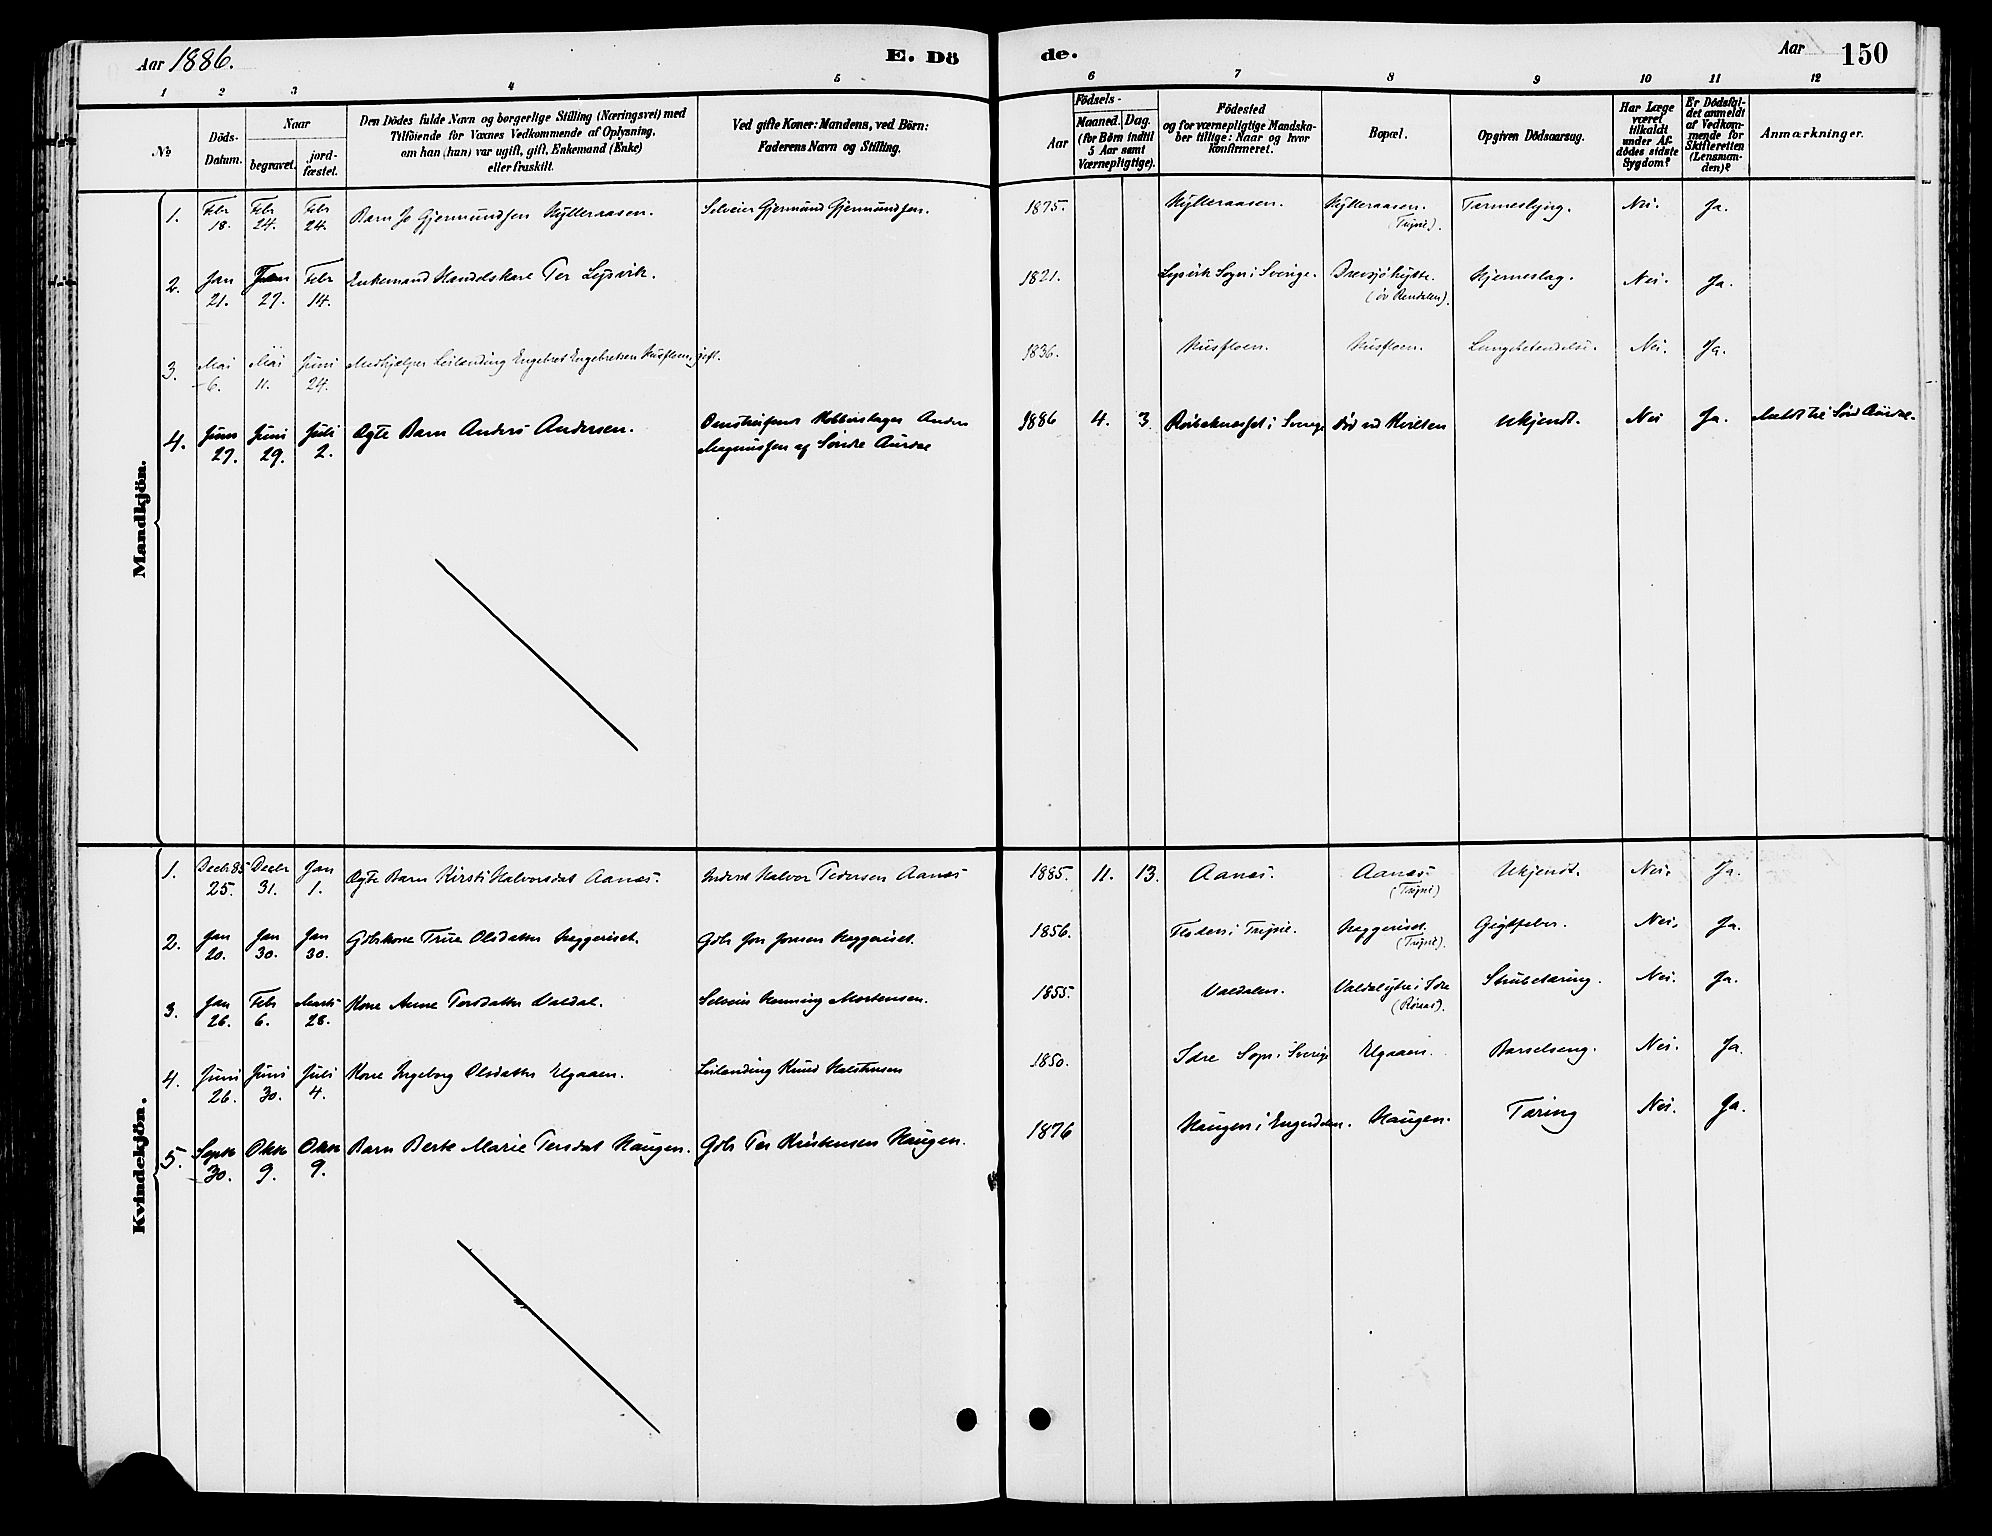 Aar 1886.
E. Dö
de.
Aar
150
1 2 3 4 5 6 7 8 9 10 11 12
No
Döds-
Datum.
Naar
begravet.
jord-
fæstet.
Den Dödes fulde Navn og borgerlige Stilling (Næringsvei) med
Tilföiende for Voxnes Vedkommende af Oplysning,
om han (hun) var ugift, gift, Enkemand (Enke)
eller fraskilt.
Ved gifte Koner: Mandens, ved Börn:
Faderens Navn og Stilling.
Födsels-
Aar
Maaned.
Dag.
(for Börn indtil
5 Aar samt
Værnepligtige).
Födested
og for værnepligtige Mandska-
ber tillige: Naar og hvor
konfirmeret.
Bopæl.
Opgiven Dödsaarsag.
Har Læge
været
tilkaldt
under Af-
dödes sidste
Sygdom?
Er Dödsfal-
det anmeldt
af Vedkom-
mende for
Skifteretten
(Lensman-
den)?
Anmærkninger.
Mandkjön.
1. Febr 18. Febr 24. Febr 24. Barn Jo Gjermundsen Hytteraasen. Selveier Gjermund Gjermundsen. 1875. Hytteraasen. Hytteraasen. (Trysil). Tarmeslyng. Nei. Ja.
2. Jan 21. Jan 27. Febr 14. Enkemand Handelskare Per Lysvik. 1821. Lysvik Sogn i Sverige. (öv Rendalen). Hjerneslag. Nei. Ja.
3. Mai 6. Mai 11. Juni 24. Medhjælper Leilænding Engebret Engebretsen Husfloen, gift. 1836. Husfloen. Husfloen. Lungebetendelse. Nei. Ja.
4. Juni 27. Juni 29. Juli 2. Ægte Barn Anders Andersen. Kobberslager Anders
Magnussen af Söndre Aurdal 1886 4. 3. i Sverige död ved Kvilten Ukjendt. Nei Ja. Meldt til Sörd Aurdal.
Kvindekjön.
1. Decbr 85 25. Decbr 31. Jan 1. Ægte Barn Kirsti Halvorsdat Aanæs. Inderst Halvor Pedersen Aanæs 1885. 11. 13. Aanæs. Aanæs. (Trysil) Ukjendt. Nei. Ja.
2. Jan 20. Jan 30. Jan 30. Gdbrkone True Olsdatter Heggeriset. Gdbr Jon Jonsen Heggeriset. 1856. Floden i Trysil. Heggeriset. (Trysil). Gigtfeber. Nei. Ja.
3. Jan 26. Febr 6. Marts 28. Kone Anne Persdatter Valdal. Selveier Henning Mortensen. 1855. Valdalen. (Röraas). Strubetæring. Nei. Ja.
4. Juni 26. Juni 30. Juli 4. Kone Ingeborg Olsdatter Elgaaen. Leilænding Knud Halstensen 1850. Idre Sogn i Sverige Elgaaen. Barselseng. Nei. Ja.
5. Septbr 30. Oktbr 9. Oktbr 9. Barn Berte Marie Persdat Haugen. Gdbr Per Kristensen Haugen. 1876 Haugen i Engerdalen. Haugen. Tæring Nei. Ja.